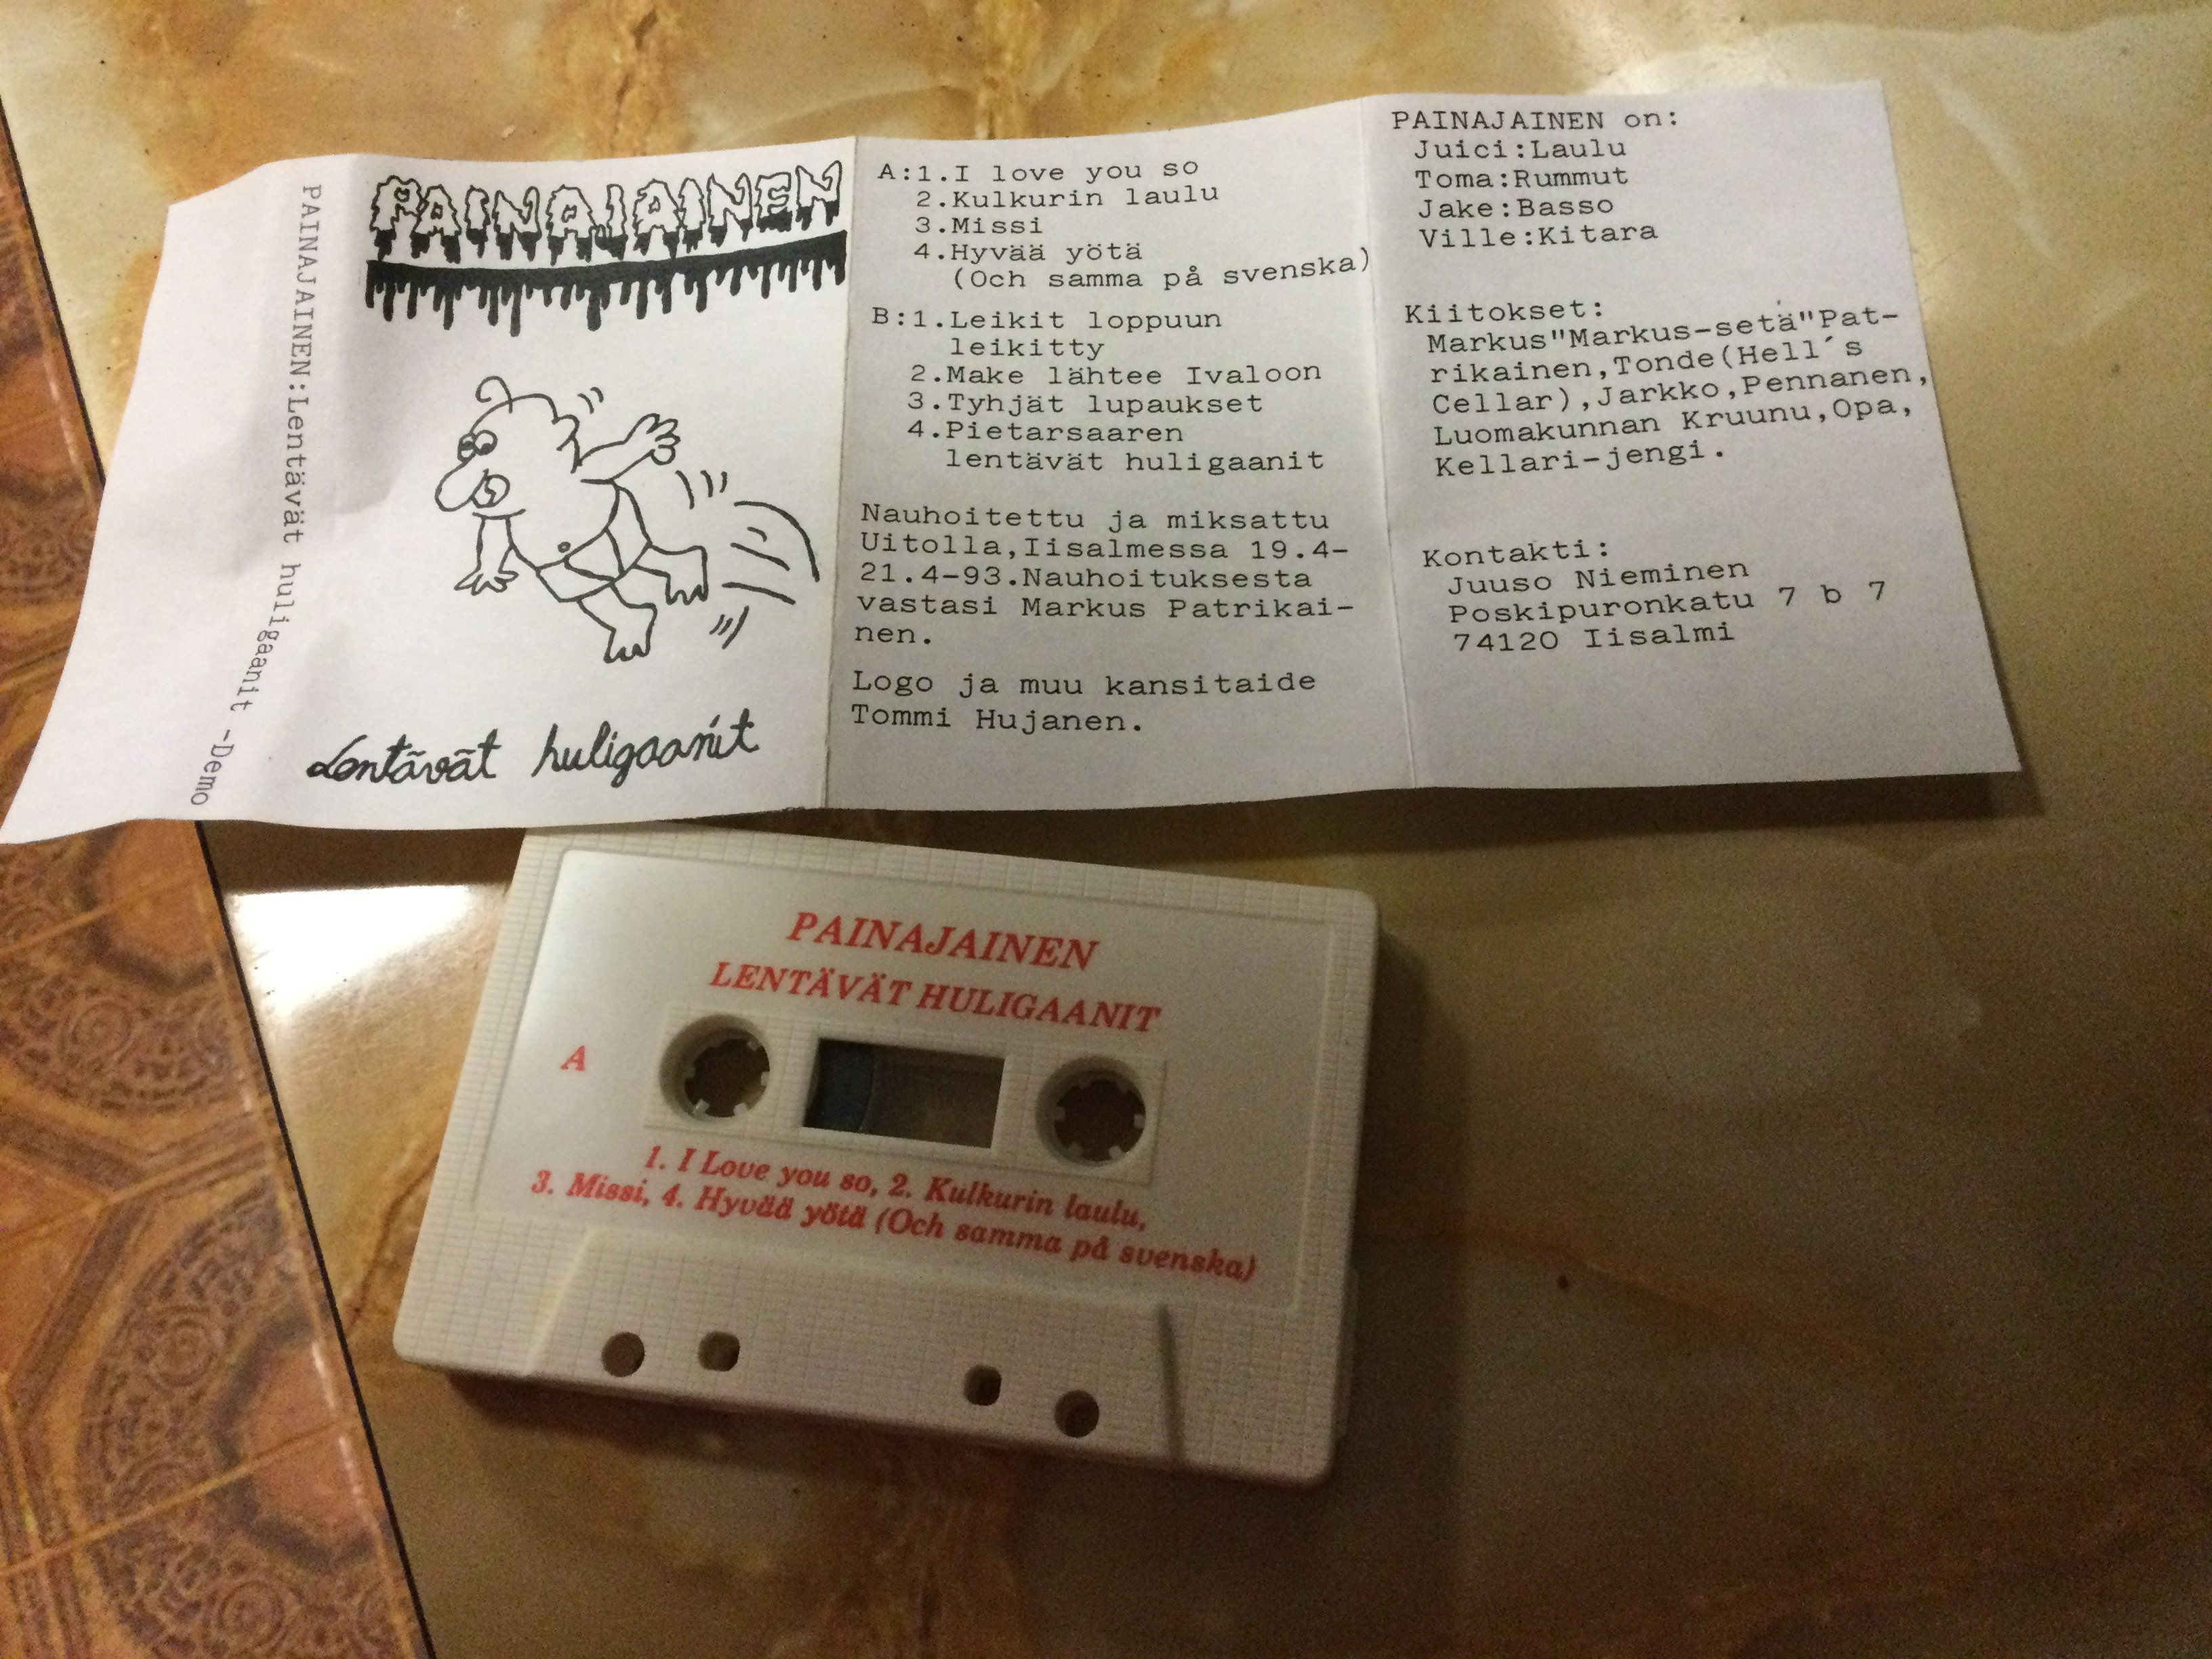 PAINAJAINEN:Lentävät huligaanit -Demo
PAINAJAINEN
Lentävät huligaanit
A:1.I love you so
2.Kulkurin laulu
3.Missi
4.Hyvää yötä
(Och samma på svenska)
B:1.Leikit loppuun
leikitty
2.Make lähtee Ivaloon
3.Tyhjät lupaukset
4.Pietarsaaren
lentävät huligaanit
Nauhoitettu ja miksattu
Uitolla,Iisalmessa 19.4-
21.4-93.Nauhoituksesta
vastasi Markus Patrikai-
nen.
Logo ja muu kansitaide
Tommi Hujanen.
PAINAJAINEN on:
Juici:Laulu
Toma:Rummut
Jake:Basso
Ville:Kitara
Kiitokset:
Markus"Markus-setä"Pat-
rikainen,Tonde(Hell´s
Cellar),Jarkko,Pennanen,
Luomakunnan Kruunu,Opa,
Kellari-jengi.
Kontakti:
Juuso Nieminen
Poskipuronkatu 7 b 7
74120 Iisalmi
PAINAJAINEN
LENTÄVÄT HULIGAANIT
A
1. I Love you so, 2. Kulkurin laulu,
3. Missi, 4. Hyvää yötä (Och samma på svenska)